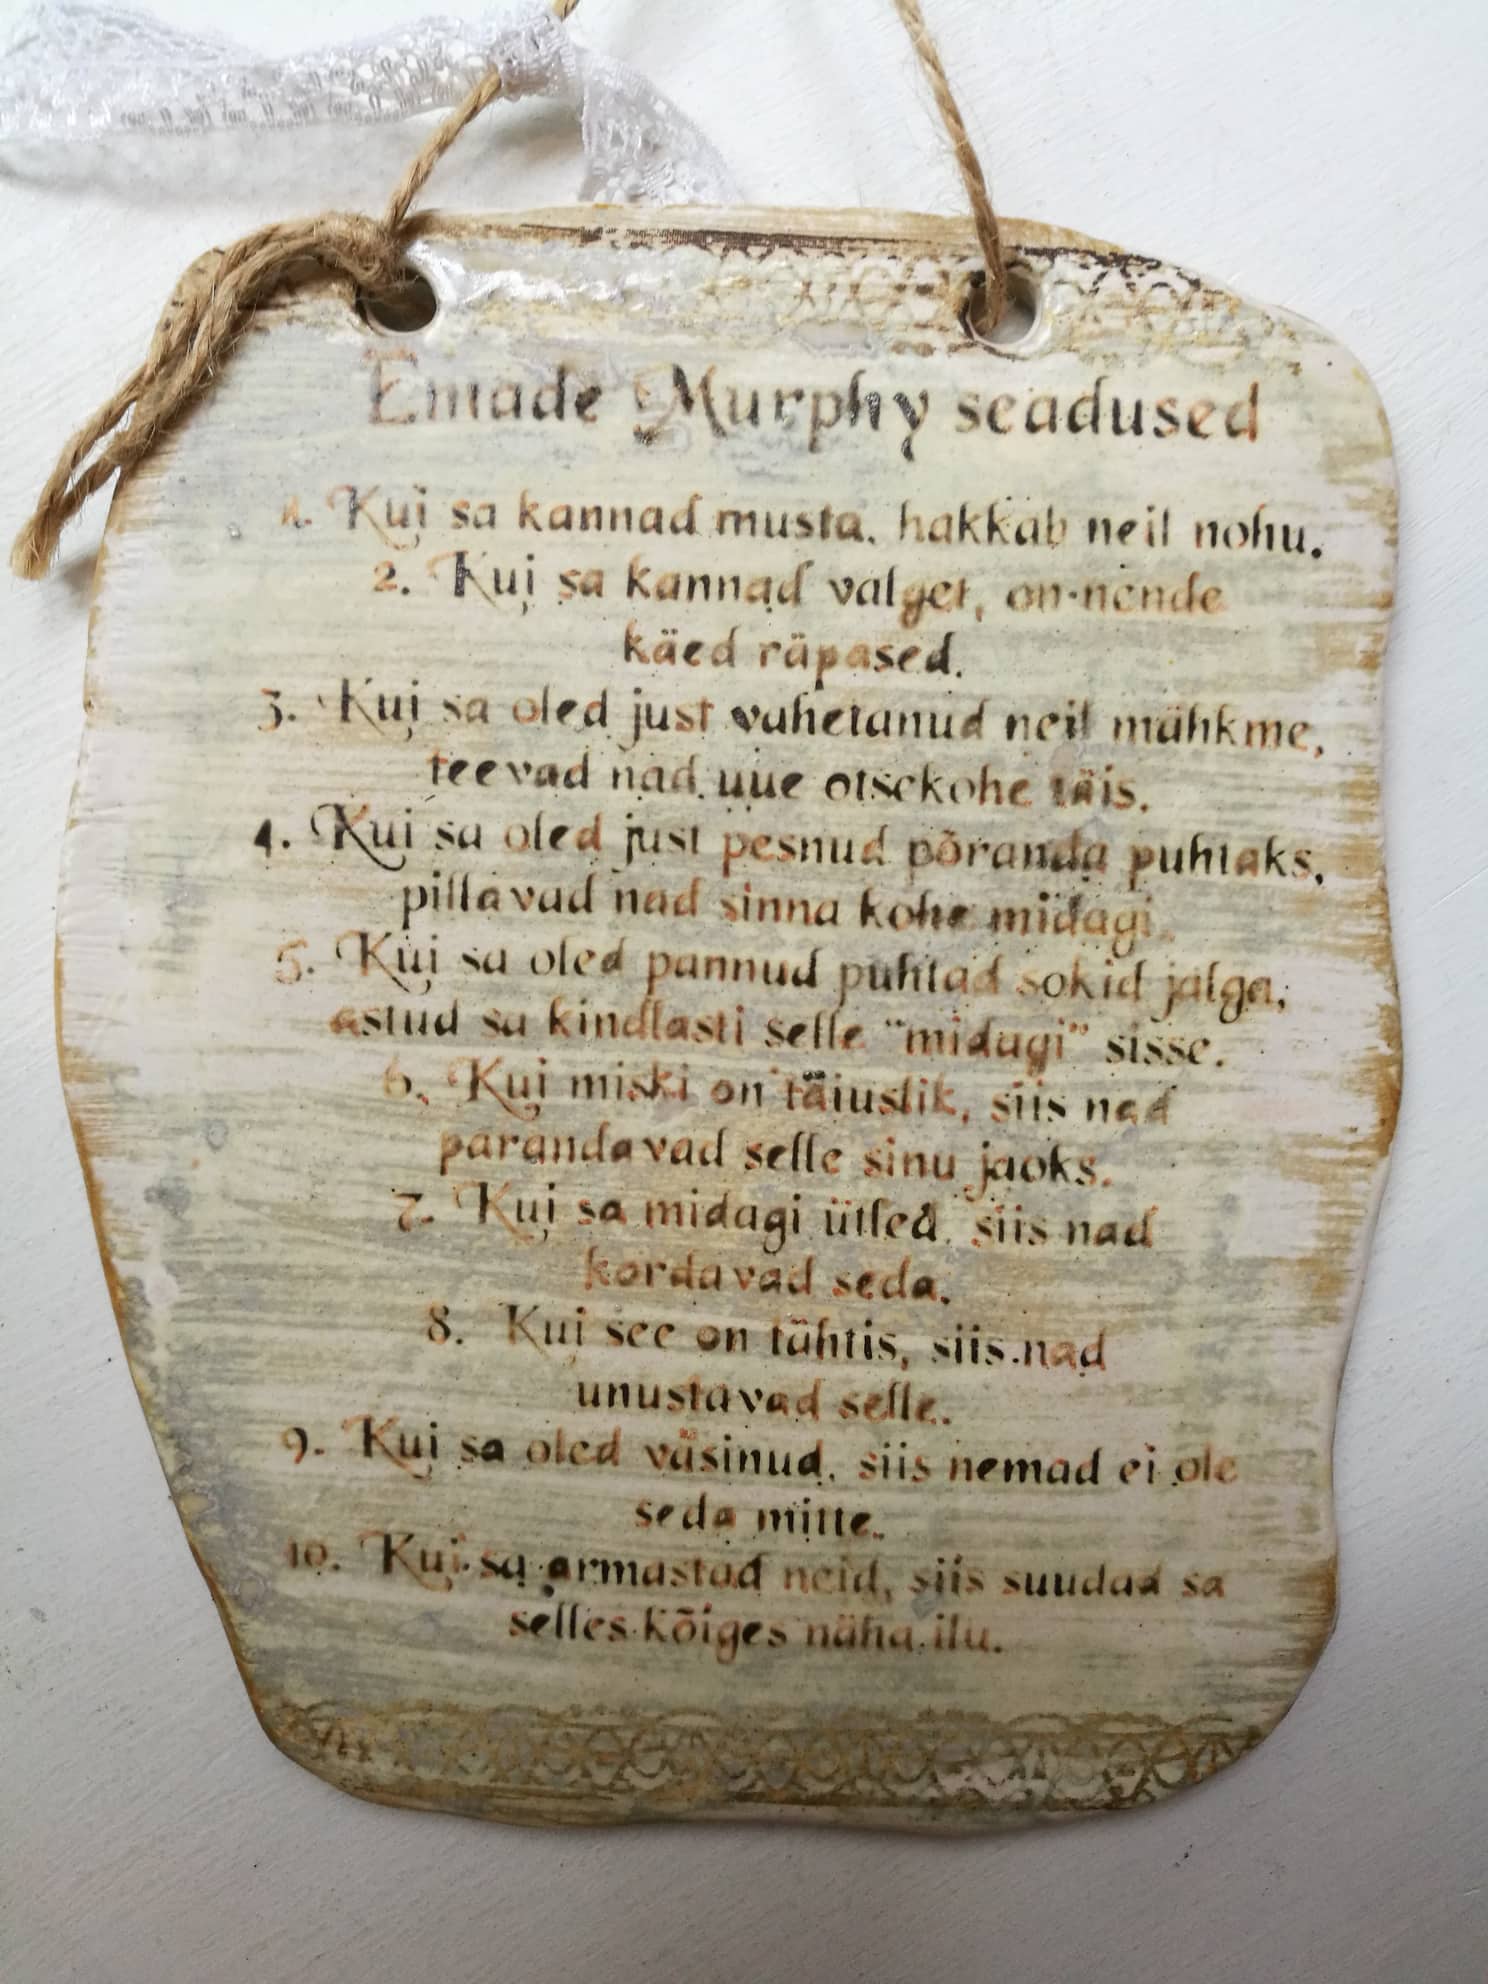 Emade Murphy seadused
1. Kui sa kannad musta, hakkab neil nohu.
2. Kui sa kannad valget, on nende
käed räpased.
3. Kui sa oled just vahetanud neil mähkme,
teevad nad uue otsekohe täis.
4. Kui sa oled just pesnud põranda puhtaks,
pillavad nad sinna kohe midagi.
5. Kui sa oled pannud puhtad sokid jalga,
astud sa kindlasti selle "midagi" sisse.
6. Kui miski on täiuslik, siis nad
parandavad selle sinu jaoks.
7. Kui sa midagi ütled, siis nad
kordavad seda.
8. Kui see on tähtis, siis nad
unustavad selle.
9. Kui sa oled väsinud, siis nemad ei ole
seda mitte.
10. Kui sa armastad neid, siis suudad sa
selles kõiges näha ilu.